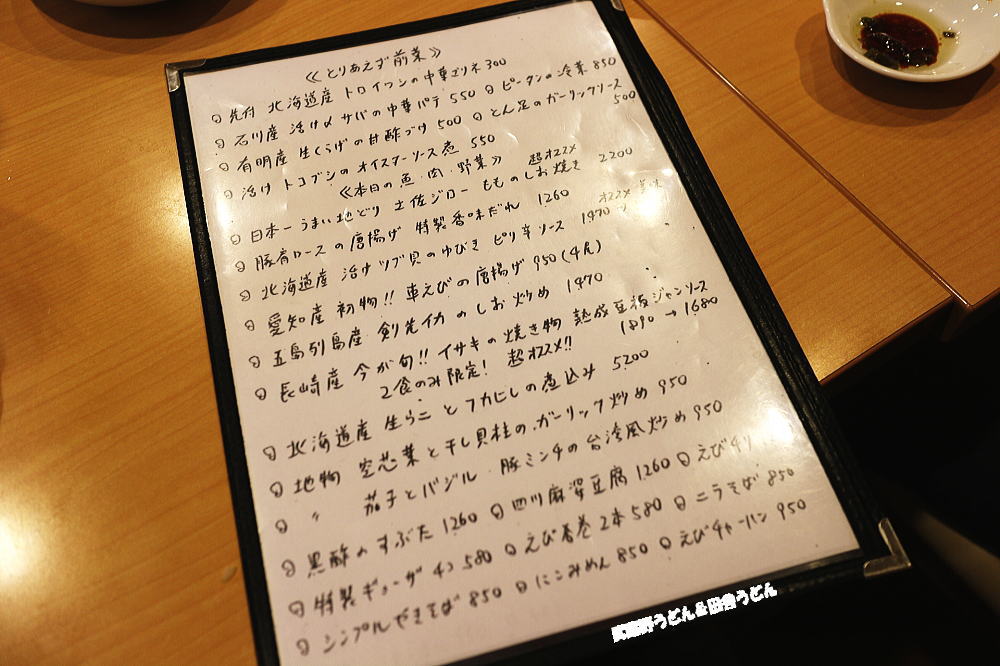 《とりあえず前菜》
先付 北海道産 トロイワシの中華マリネ 300
石川産 活け〆 サバの中華パテ 550 ピータンの冷菜 850
有明産 生くらげの甘酢づけ 500 とん足のガーリックソース 500
活け トコブシのオイスターソース煮 550
《本日の魚・肉・野菜》 超オススメ
日本一うまい地どり 土佐ジロー もものしお焼き 2200
豚肩ロースの唐揚げ 特製香味だれ 1260 オススメ
北海道産 活けツブ貝のゆびき ピリ辛ソース 1470
愛知産 初物!! 車えびの唐揚げ 950(4尾)
五島列島産 剣先イカのしお炒め 1470
長崎産 今が旬!! イサキの焼き物 熟成豆板ジャンソース
2食のみ限定! 超オススメ!! 1890→1680
北海道産 生うにとフカヒレの煮込み 5200
地物 空芯菜と干し貝柱のガーリック炒め 950
〃 茄子とバジル・豚ミンチの台湾風炒め 950
黒酢のすぶた 1260 四川麻婆豆腐 1260 えびチリ
特製ギョーザ 4コ 580 えび春巻 2本 580 ニラそば 850
シンプルやきそば 850 にこみめん 850 えびチャーハン 950
武蔵野うどん&田舎うどん